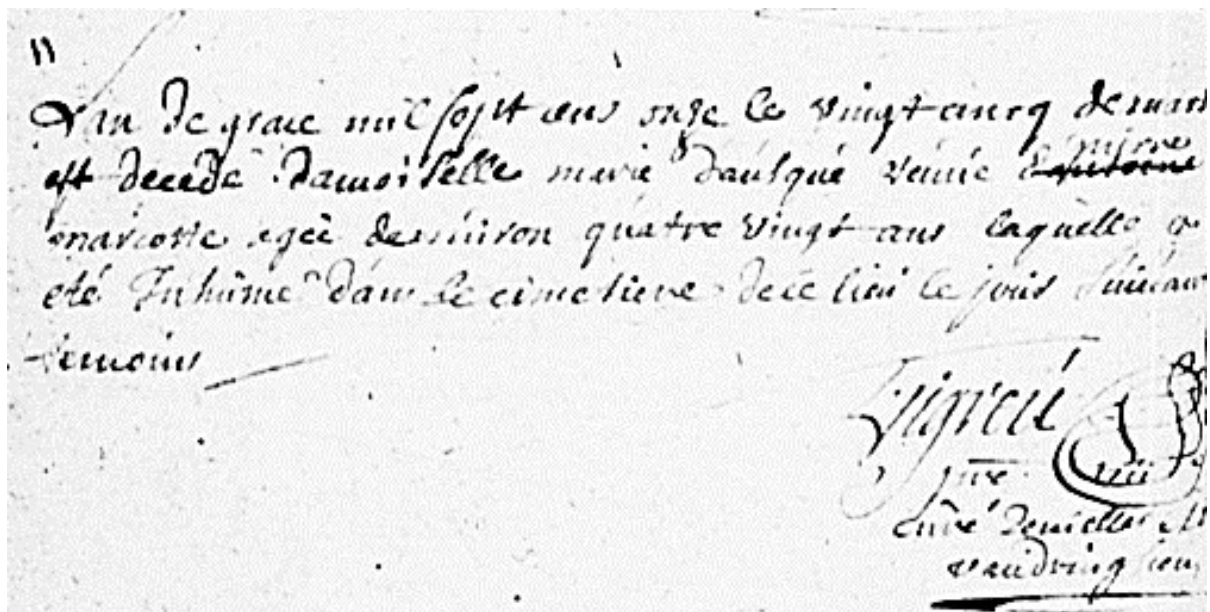 11
Lan de grace mil sept cens onze le vingt cincq de mars
est decedé damoiselle marie dausque veuve
marcotte agée denviron quatre vingt ans laquelle a
eté Inhumé dans le cimetiere de ce lieu le jour suivant
temoins
pre
curé de nielle
vaudringhien